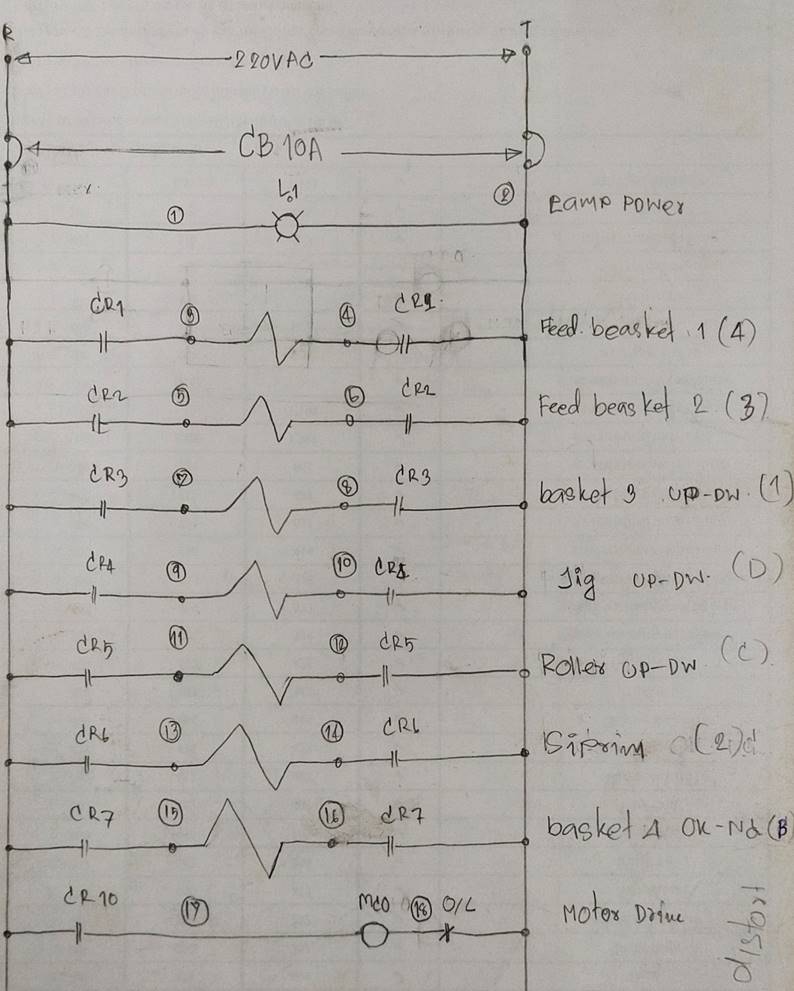 R T
220VAC
CB 10A
L.1 2
1 Lamp Power
CR1 3 4 CR1
Feed. beasket. 1 (4)
CR2 5 6 CR2
Feed beasket 2 (3)
CR3 7 8 CR3
basket 3 UP-DW. (1)
CR4 9 10 CR4
Jig UP-DW. (D)
CR5 11 12 CR5
Roller UP-DW (C)
CR6 13 14 CR6
Siprim (2)
CR7 15 16 CR7
basket 4 OK-NG (B)
CR10 17 MCO 18 O/L
Motor Drive
distort